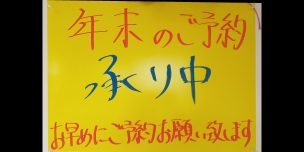 年末のご予約
承り中
お早めにご予約お願い致します